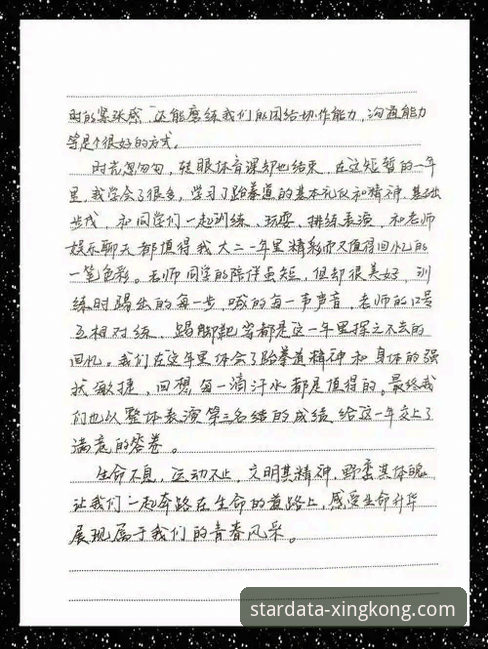 时的紧张感，还能磨练我们的团结协作能力，沟通能力
等是个很好的方式。
时光匆匆，转眼体育课却也结束，在这短暂的一年
里，我学会了很多，学习了跆拳道的基本礼仪和精神，基础
步伐，和同学们一起训练、玩耍、排练表演，和老师
娱乐聊天都值得我大二一年里精彩而又值得回忆的
一笔色彩。老师同学的陪伴虽短，但却很美好，训
练时踢出的每一步，喊的每一声声音，老师的口号
互相对练、踢脚靶等都是这一年里挥之不去的
回忆。我们在这年里体会了跆拳道精神和身体的强
状敏捷，回想每一滴汗水都是值得的。最终我
们也以整体表演第三名结的成绩，给这一年交上了
满意的答卷。
生命不息，运动不止，文明其精神，野蛮其体魄
让我们一起奔跑在生命的道路上，感受生命升华
展现属于我们的青春风采。
stardata-xingkong.com